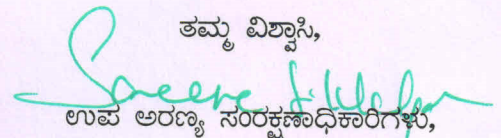 ತಮ್ಮ ವಿಶ್ವಾಸಿ,
ಉಪ ಅರಣ್ಯ ಸಂರಕ್ಷಣಾಧಿಕಾರಿಗಳು,